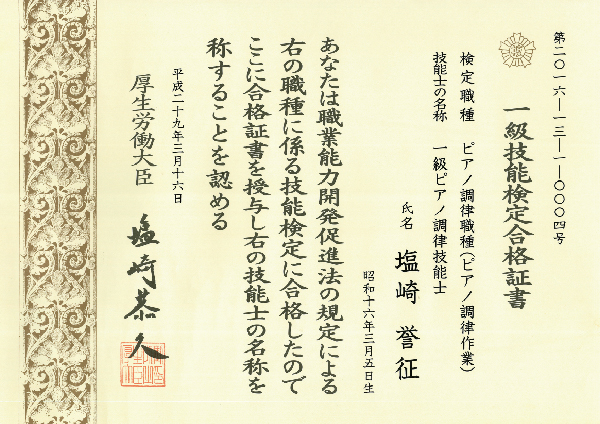 第二〇一六―一三―一―〇〇〇四号
一級技能検定合格証書
検定職種 ピアノ調律職種(ピアノ調律作業)
技能士の名称 一級ピアノ調律技能士
氏名 塩崎 誉征
昭和十六年三月五日生
あなたは職業能力開発促進法の規定による
右の職種に係る技能検定に合格したので
ここに合格証書を授与し右の技能士の名称を
称することを認める
平成二十九年三月十六日
厚生労働大臣
塩崎恭久